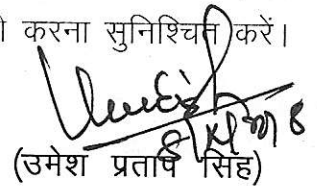 करना सुनिश्चित करें।
(उमेश प्रताप सिंह)